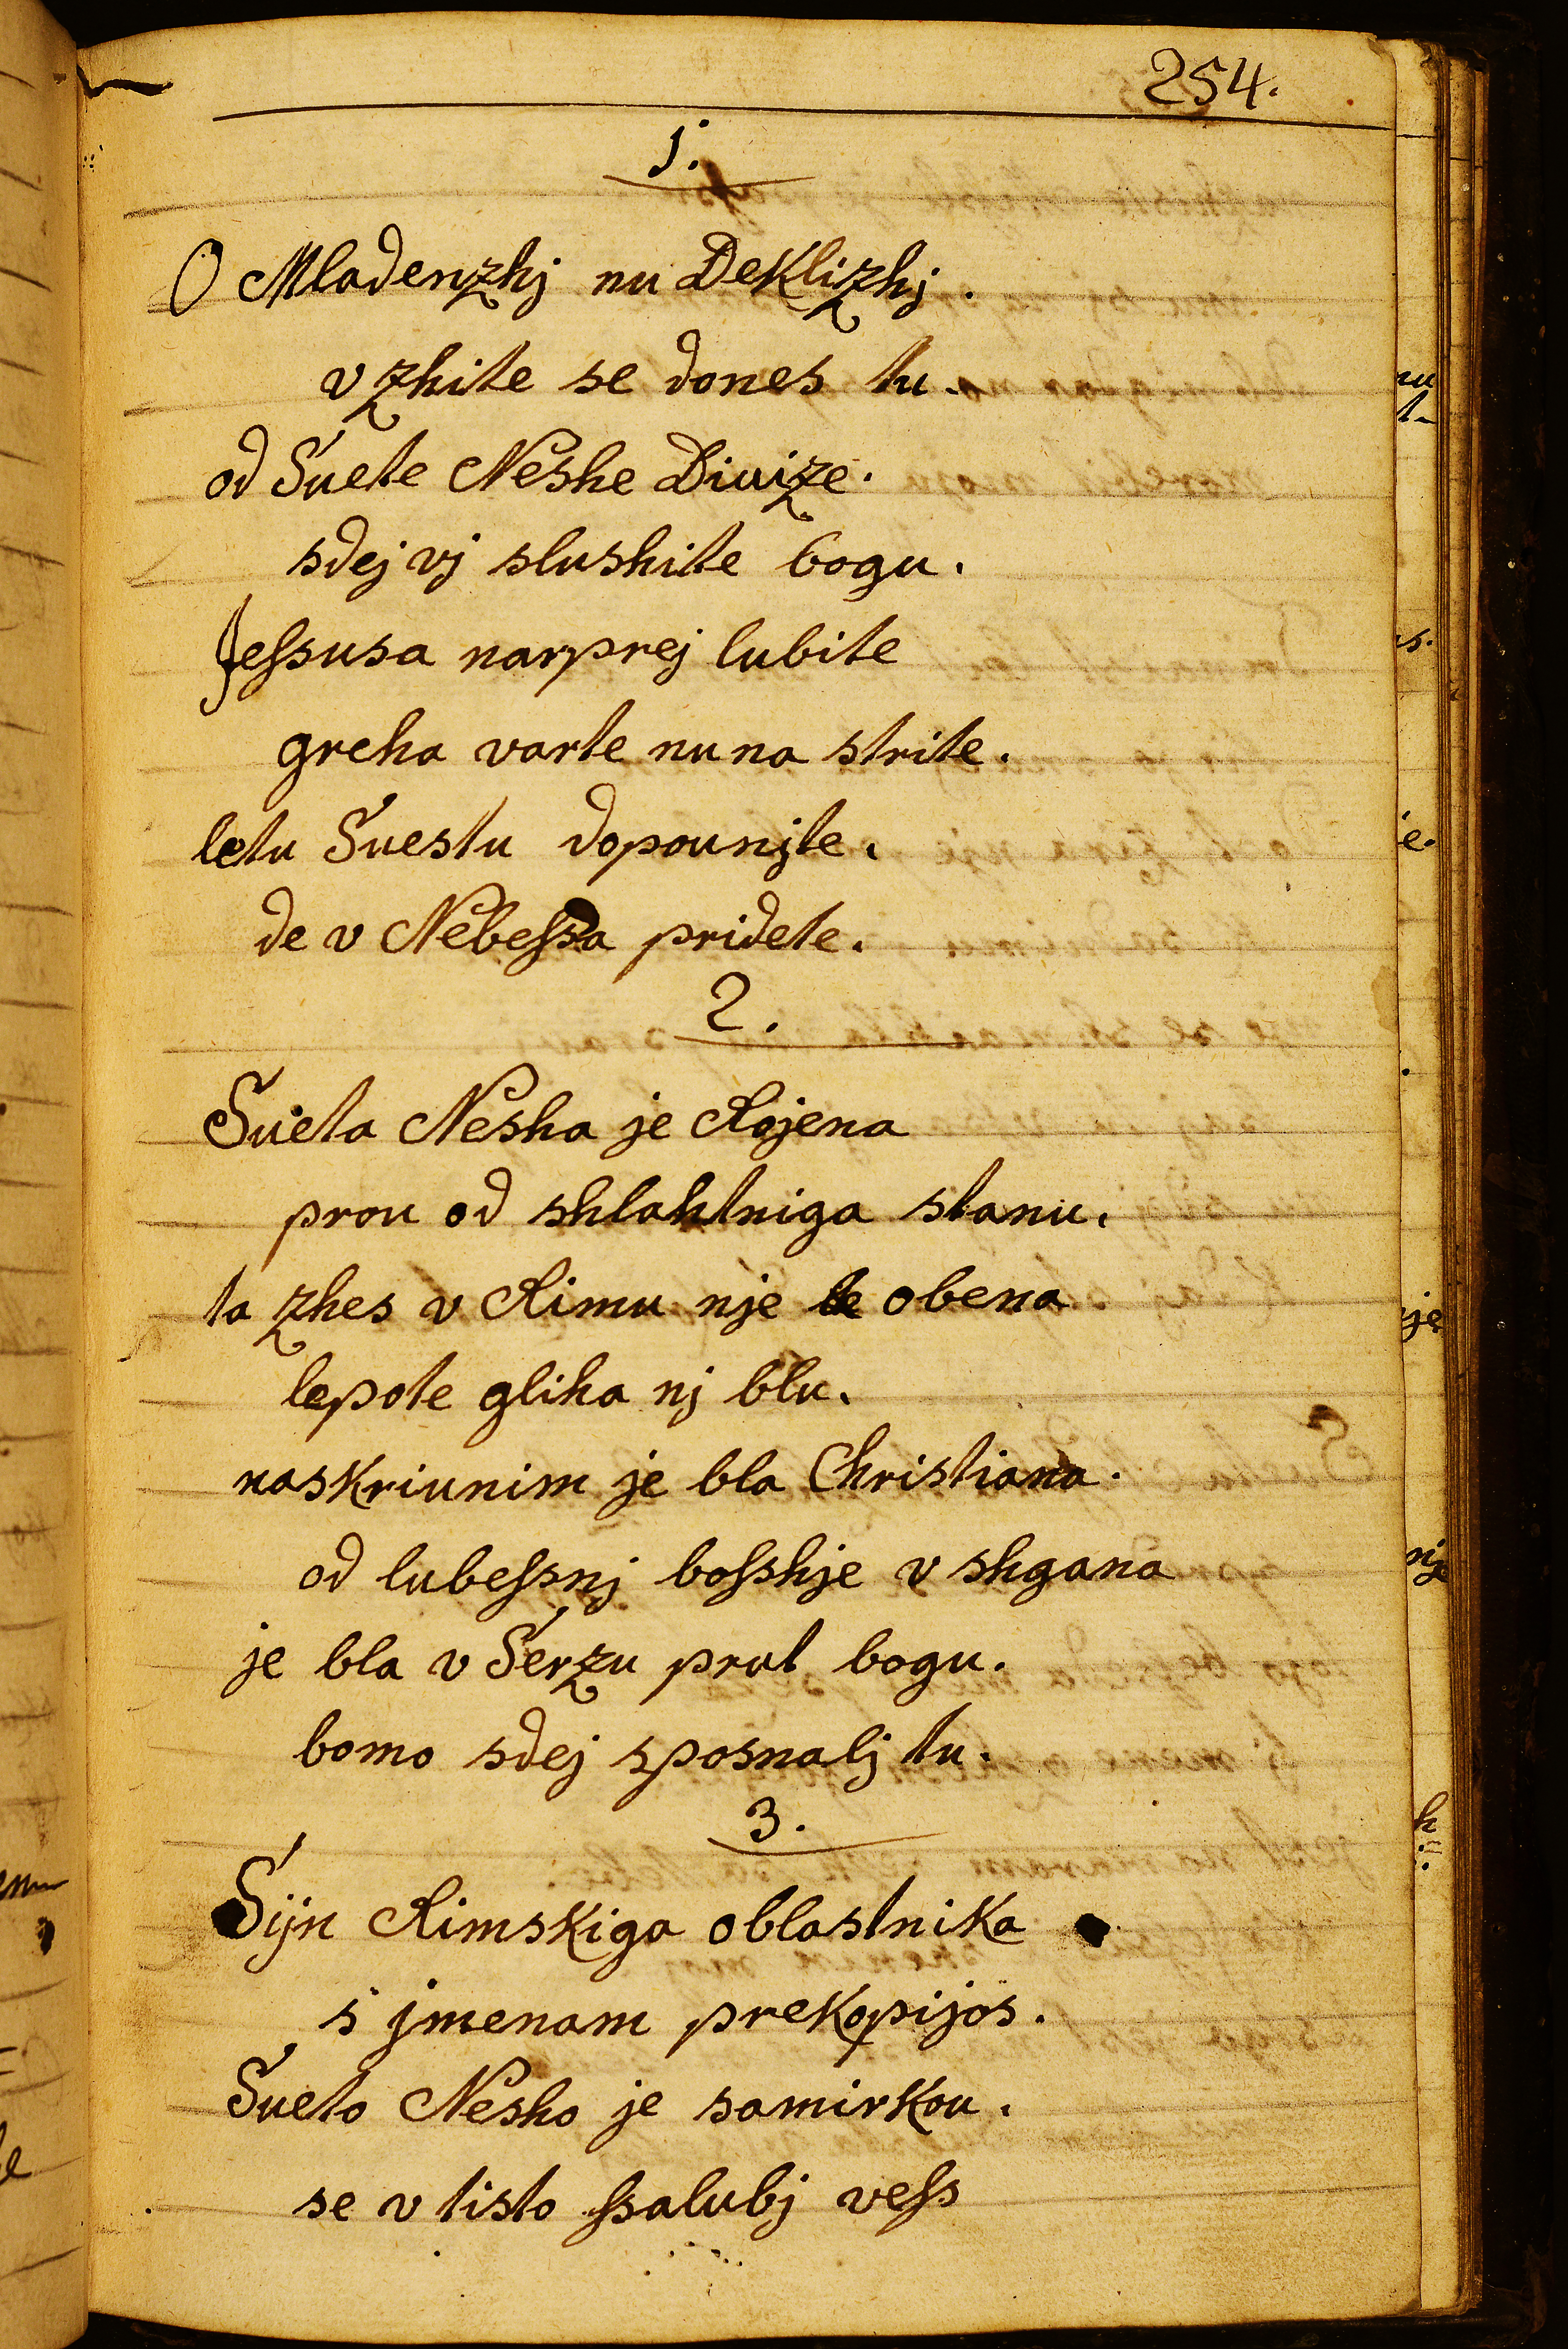 254.
1.
O Mladenzhj nu Deklizhj.
vzhite se dones tu.
od Suete Neshe Diuize.
sdej vj slushite bogu.
Jeſsusa narprej lubite
greha varte nu na strite.
letu Suestu dopounjte.
de v Nebeſsa pridete.
2.
Sueta Nesha je Rojena
prou od shlahtniga stanu.
ta zhes v Rimu nje obena
lepote gliha nj blu.
naskriunim je bla Christiana.
od lubeſsnj boſshje v shgana
je bla v Serzu prut bogu.
bomo sdej sposnalj tu.
3.
Sijn Rimskiga oblastnika
s jmenam prekopijos.
Sueto Nesho je samirkou.
se v tisto ſsalubj veſs